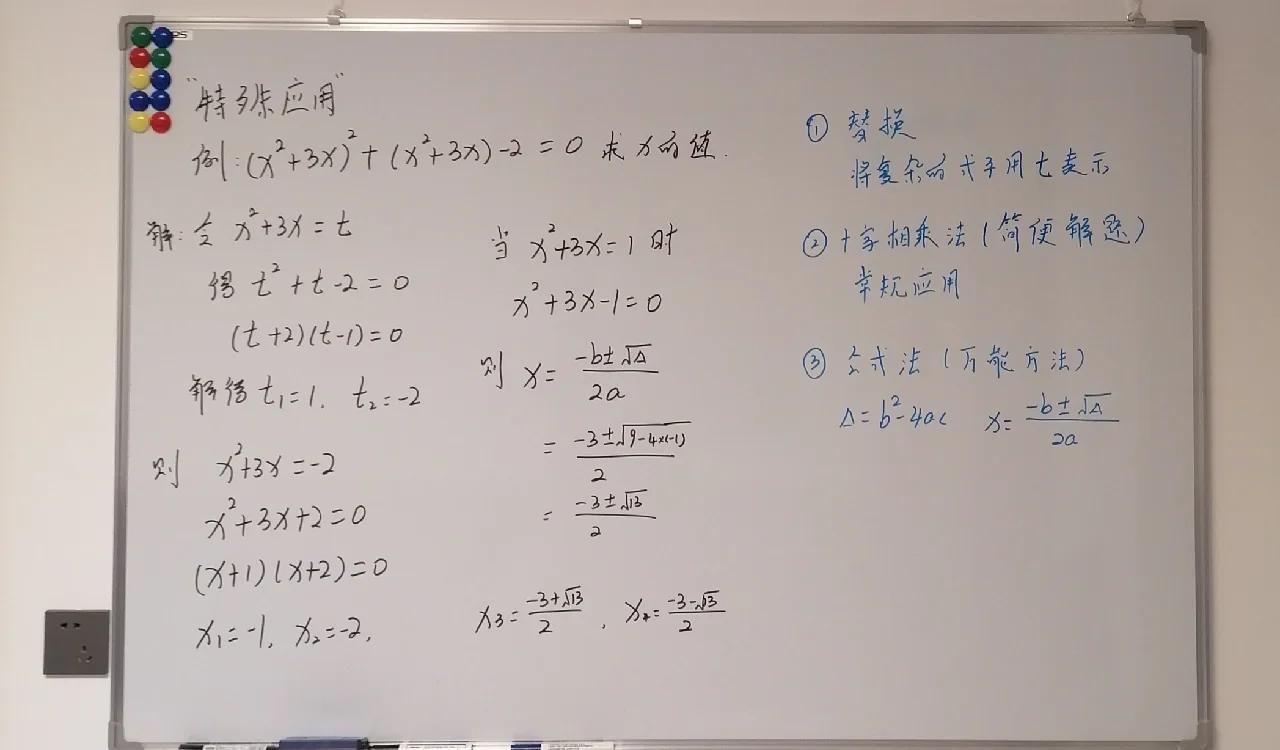 "特殊应用"
例:(x²+3x)²+(x²+3x)-2=0 求x的值.
解:令 x²+3x=t
得 t²+t-2=0
(t+2)(t-1)=0
解得 t₁=1, t₂=-2
则 x²+3x=-2
x²+3x+2=0
(x+1)(x+2)=0
x₁=-1, x₂=-2,
当 x²+3x=1 时
x²+3x-1=0
则 x= (-b±√Δ)/2a
= (-3±√(9-4×(-1)))/2
= (-3±√13)/2
x₃= (-3+√13)/2 , x₄= (-3-√13)/2
① 替换
将复杂的式子用t表示
② 十字相乘法(简便解题)
常规应用
③ 公式法(万能方法)
Δ=b²-4ac x= (-b±√Δ)/2a